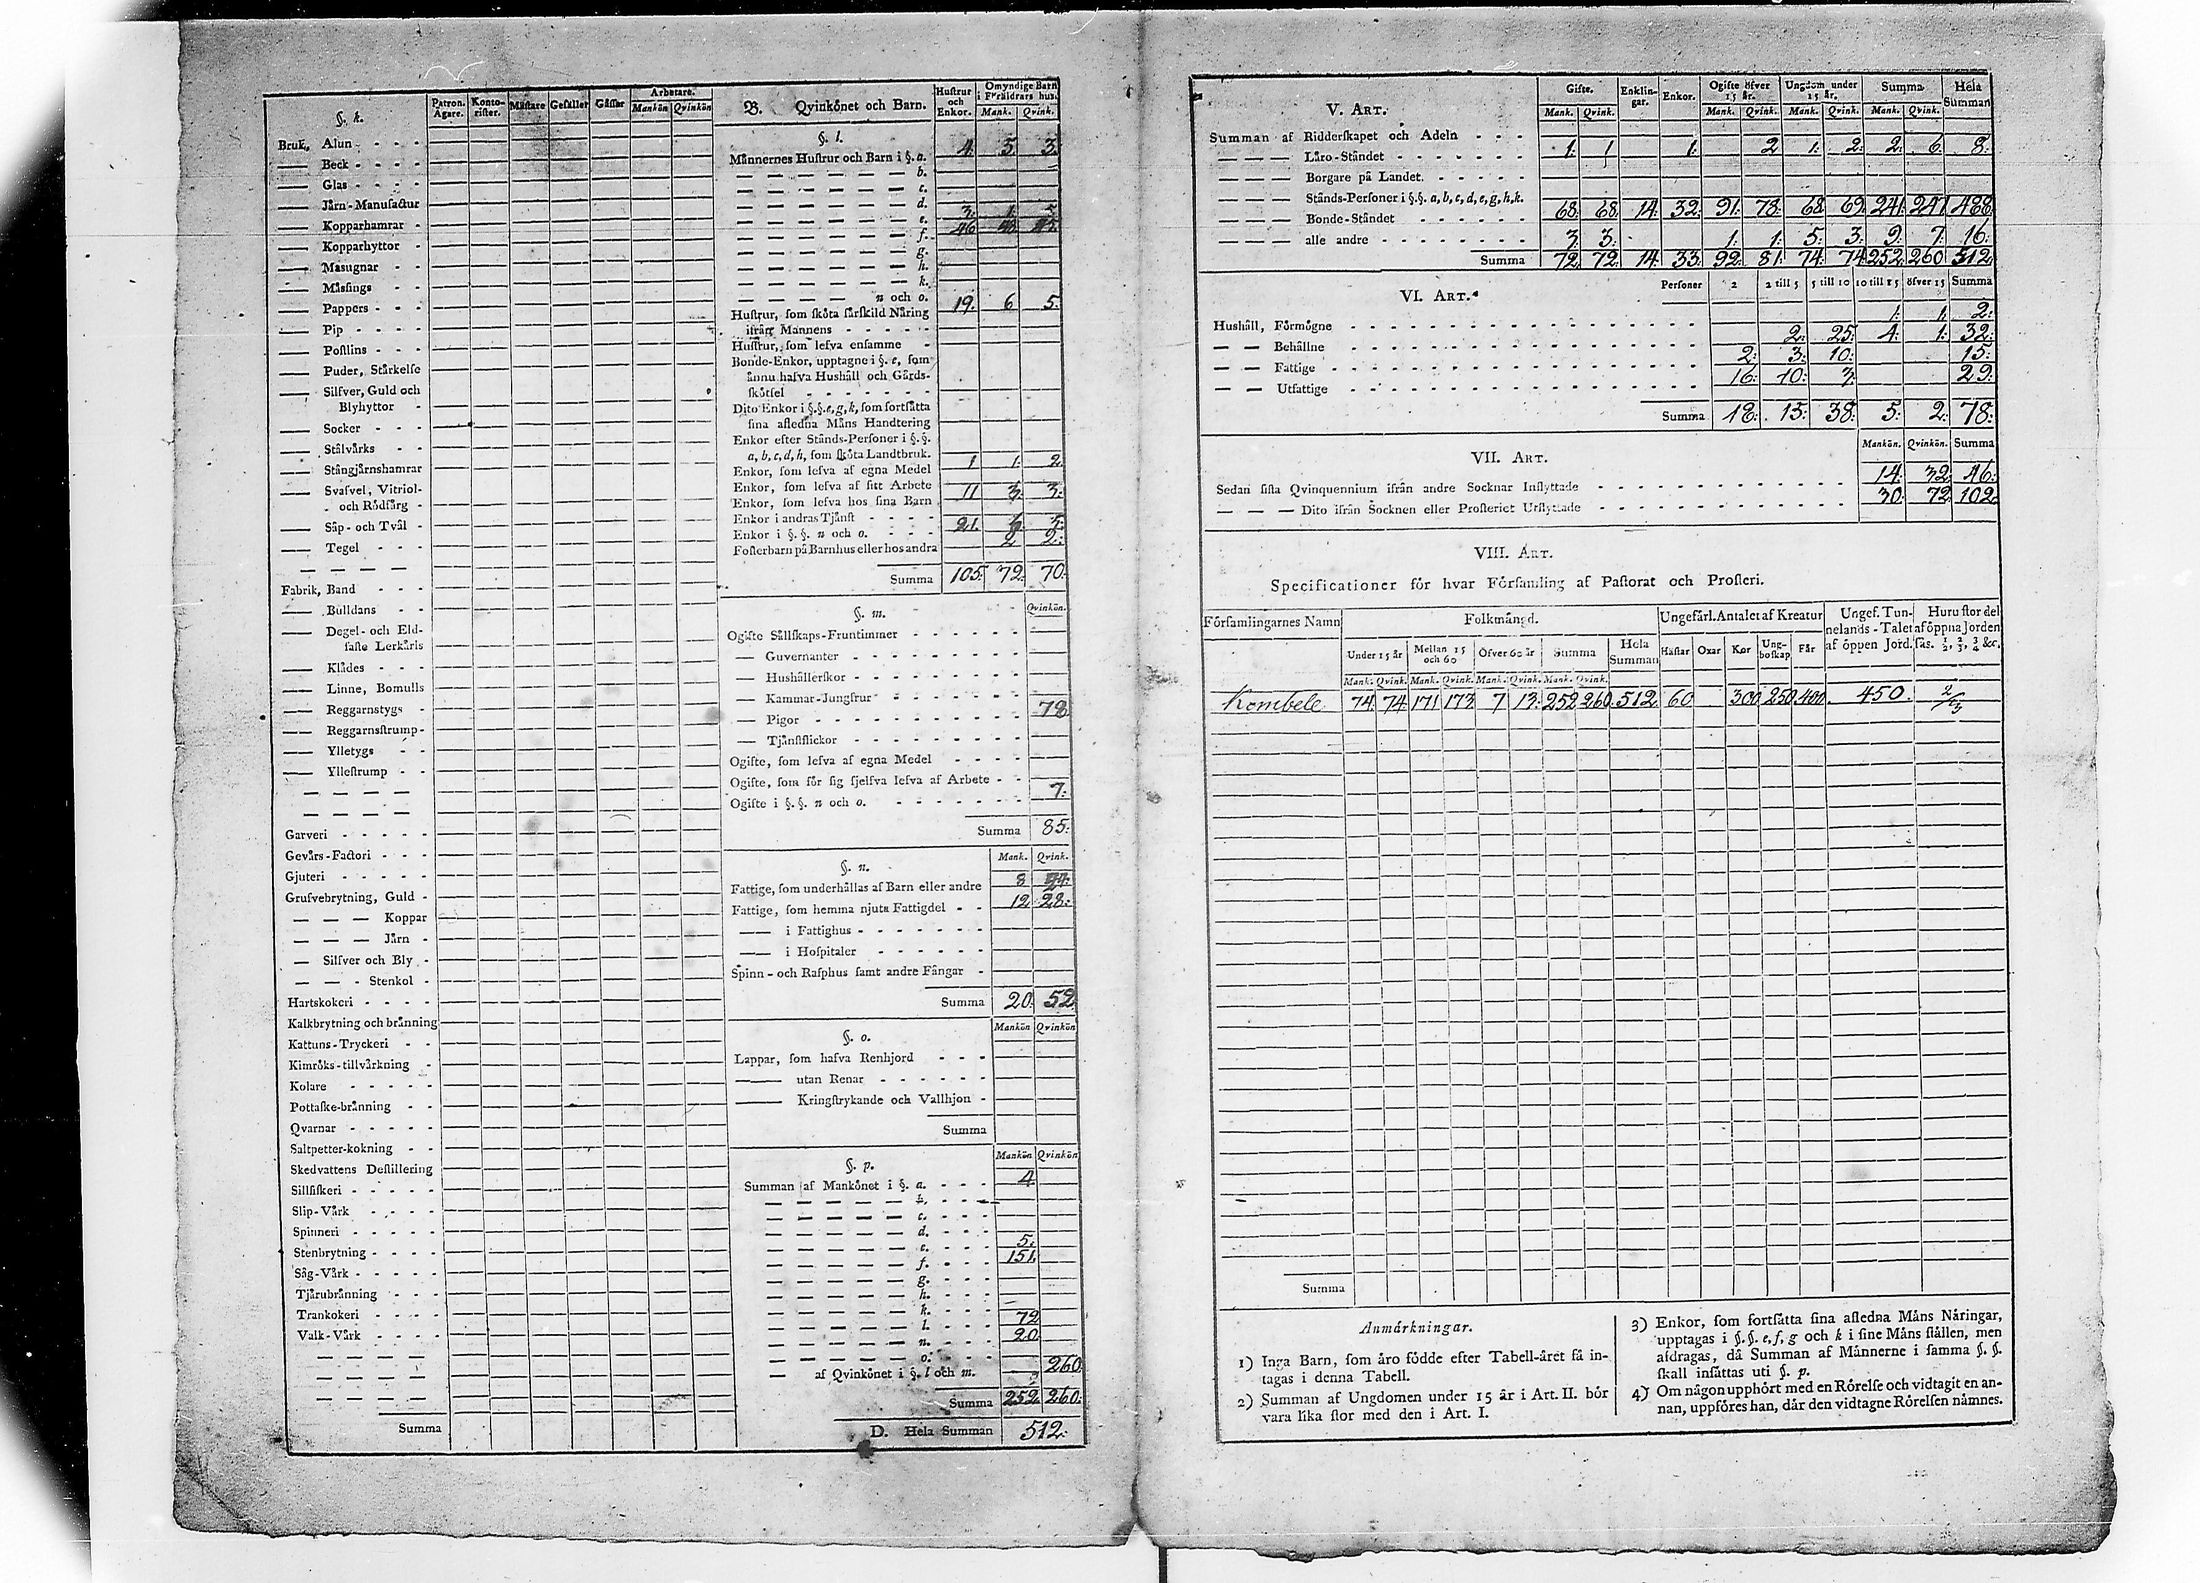 §. k.
Patron. Ägare.
Konto-rister.
Mästare
Gesäller
Gåssar
Arbetare.
Mankön Qvinkön
Bruk, Alun
Beck
Glas
Järn-Manufactur
Kopparhamrar
Kopparhyttor
Masugnar
Mässings
Pappers
Pip
Postlins
Puder, Stärkelse
Silfver, Guld och
Blyhyttor
Socker
Stålvärks
Stångjärnshamrar
Svafvel, Vitriol-
och Rödfärg
Såp- och Tvål
Tegel
Fabrik, Band
Bulldans
Degel- och Eld-
faste Lerkärls
Klädes
Linne, Bomulls
Reggarnstygs
Reggarnsstrump
Ylletygs
Yllestrump
Garveri
Gevärs-Factori
Gjuteri
Grufvebrytning, Guld
Koppar
Järn
Silfver och Bly
Stenkol
Hartskokeri
Kalkbrytning och bränning
Kattuns-Tryckeri
Kimröks-tillvärkning
Kolare
Pottaske-bränning
Qvarnar
Saltpetter-kokning
Skedvattens Destillering
Sillfiskeri
Slip-Värk
Spinneri
Stenbrytning
Såg-Värk
Tjärubränning
Trankokeri
Valk-Värk
Summa
B. Qvinkönet och Barn.
Hustrur och Enkor.
Omyndige Barn i Föräldrars hus.
Mank. Qvink.
§. l.
Männernes Hustrur och Barn i §. a. 4. 5. 3.
b.
c.
d.
e. 3. 1. 5.
f. 46
g.
h.
k.
n och o. 19. 6 5.
Hustrur, som sköta särskild Näring
ifrån Mannens
Hustrur, som lefva ensamme
Bonde-Enkor, upptagne i §. e, som
ännu hafva Hushåll och Gårds-
skötsel
Dito Enkor i §.§. e, g, k, som fortsätta
sina afledna Mäns Handtering
Enkor efter Stånds-Personer i §.§.
a, b, c, d, h, som sköta Landtbruk.
Enkor, som lefva af egna Medel 1 1. 2.
Enkor, som lefva af sitt Arbete
Enkor, som lefva hos sina Barn 11 3. 3.
Enkor i andras Tjänst
Enkor i §. §. n och o. 21.
Fosterbarn på Barnhus eller hos andra 2 2.
Summa 105. 72. 70.
§. m. Qvinkön.
Ogifte Sällskaps-Fruntimmer
Guvernanter
Hushållerskor
Kammar-Jungfrur
Pigor 78
Tjänstflickor
Ogifte, som lefva af egna Medel
Ogifte, som för sig sjelfva lefva af Arbete
Ogifte i §. §. n och o. 7.
Summa 85.
§. n. Mank. Qvink.
Fattige, som underhållas af Barn eller andre 8
Fattige, som hemma njuta Fattigdel 12 28.
i Fattighus
i Hospitaler
Spinn- och Rasphus samt andre Fångar
Summa 20. 52
§. o. Mankön Qvinkön
Lappar, som hafva Renhjord
utan Renar
Kringstrykande och Vallhjon
Summa
§. p. Mankön Qvinkön
Summan af Mankönet i §. a. 4
b.
c.
d.
e. 5.
f. 151.
g.
h.
k.
l. 72
n. 20.
o.
af Qvinkönet i §. l och m. 260
Summa 252 260.
D. Hela Summan 512.
V. ART.
Gifte. Enklin-gar. Enkor. Ogifte öfver 15 år. Ungdom under 15 år. Summa Hela Summan
Mank. Qvink. Mank. Qvink. Mank. Qvink. Mank. Qvink.
Summan af Ridderskapet och Adeln
Läro-Ståndet 1. 1 1. 2 1. 2. 2. 6. 8.
Borgare på Landet.
Stånds-Personer i §.§. a, b, c, d, e, g, h, k.
Bonde-Ståndet 68. 68. 14. 32. 91. 78. 68 69. 241. 247 488
alle andre 3. 3. 1. 1. 5. 3. 9. 7. 16.
Summa 72 72. 14. 33. 92. 81. 74. 74 252 260 512
VI. ART.
Personer 2 2 till 5 5 till 10 10 till 15 öfver 15 Summa
Hushåll, Förmögne 1. 1. 2.
Behållne 2. 25. 4. 1. 32.
Fattige 2. 3. 10. 15.
Utfattige 16. 10. 3. 29.
Summa 18. 15. 38. 5. 2. 78.
VII. ART.
Mankön. Qvinkön. Summa
Sedan sista Qvinquennium ifrån andre Socknar Inflyttade 14. 32. 46.
Dito ifrån Socknen eller Prosteriet Utflyttade 30. 72. 102
VIII. ART.
Specificationer för hvar Församling af Pastorat och Prosteri.
Församlingarnes Namn
Folkmängd.
Ungefärl. Antalet af Kreatur
Ungef. Tun-nelands-Talet af öppen Jord.
Huru stor del af öppna Jorden sås. 1/2, 2/3, 3/4 &c.
Under 15 år Mellan 15 och 60 Öfver 60 år Summa Hela Summan
Hästar Oxar Kor Ung-boskap Får
Mank. Qvink. Mank. Qvink. Mank. Qvink. Mank. Qvink.
Kombele 74. 74. 171 173 7 13. 252 260. 512 60 300 250 400 450. 2/3
Summa
Anmärkningar.
1) Inga Barn, som äro födde efter Tabell-året få in-
tagas i denna Tabell.
2) Summan af Ungdomen under 15 år i Art. II. bör
vara lika stor med den i Art. I.
3) Enkor, som fortsätta sina afledna Mäns Näringar,
upptagas i §. §. e, f, g och k i sine Mäns ställen, men
afdragas, då Summan af Männerne i samma §. §.
skall insättas uti §. p.
4) Om någon upphört med en Rörelse och vidtagit en an-
nan, uppföres han, där den vidtagne Rörelsen nämnes.